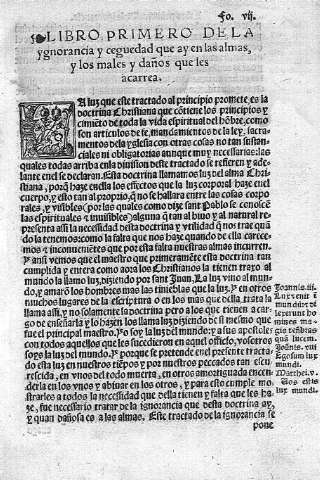 fo. vij.
LIBRO PRIMERO DE LA
ygnorancia y ceguedad que ay en las almas,
y los males y daños que les
acarrea.
LA luz que este tractado al principio promete, es la
doctrina Christiana que cōtiene los principios y
cimiēto de toda la vida espiritual del hōbre, como
son articulos de fe, mandamientos de la ley, sacra-
mentos de la yglesia con otras cosas no tan sustan-
ciales ni obligatorias aunque muy necessarias: las
quales todas arriba en la diuision deste tractado se refieren y ade-
lante en el se declaran. Esta doctrina llamamos luz del alma Chri-
stiana, porq̄ haze en ella los effectos que la luz corporal haze en el
cuerpo, y esto tan al proprio, q̄ no se hallara entre las cosas corpo
rales, y visibles (por las quales como dize sant Pablo se conoscē
las espirituales z inuisibles) alguna q̄ tan al biuo y al natural re
presenta assi la necessidad desta doctrina y vtilidad q̄ nos trae quā
do la tenemos: como la falta que nos haze quando de ella carece-
mos y inconuenientes que por esta falta nuestras almas incurren.
Y ansi vemos que el maestro que primeramēte esta doctrina tan
cumplida y entera como aora los Christianos la tienen traxo al
mundo la llamo luz, diziendo por san Juan. La luz vino al mun-
do, y amarō los hombres mas las tinieblas que la luz. Y en otros
muchos lugares de la escriptura o en los mas que della trata la
llama assi, y no solamente la doctrina pero a los que tienen a car-
go de enseñarla y lo hazen los llama luz diziendo de si mesmo que
fue el principal maestro. Yo soy la luz del mundo: y a sus apostoles
con todos aquellos que les sucedieron en aquel officio, vosotros
soys la luz del mundo. Y porque se pretende en el presente tracta-
do esta luz en nuestros tiēpos y por nuestros peccados tan escu-
rescida, en vnos del todo muerta, en otros amortiguada encen-
derla en los vnos y abiuar en los otros, y para esto cumple mo-
strarles a todos la necessidad que della tienen y falta que les ha-
ze, fue necessario tratar de la ignorancia que desta doctrina ay,
y quan dañosa es a las almas. Este tractado de la ignorancia se
pone
Joannis.iij.
Lux venit ī
mundum: di
lexerunt ho
mines ma-
gis tenebras
quā lucem.
Joānis. viij
Ego sum lux
mundi.
Matthei.v.
Vos estis
lux mundi.